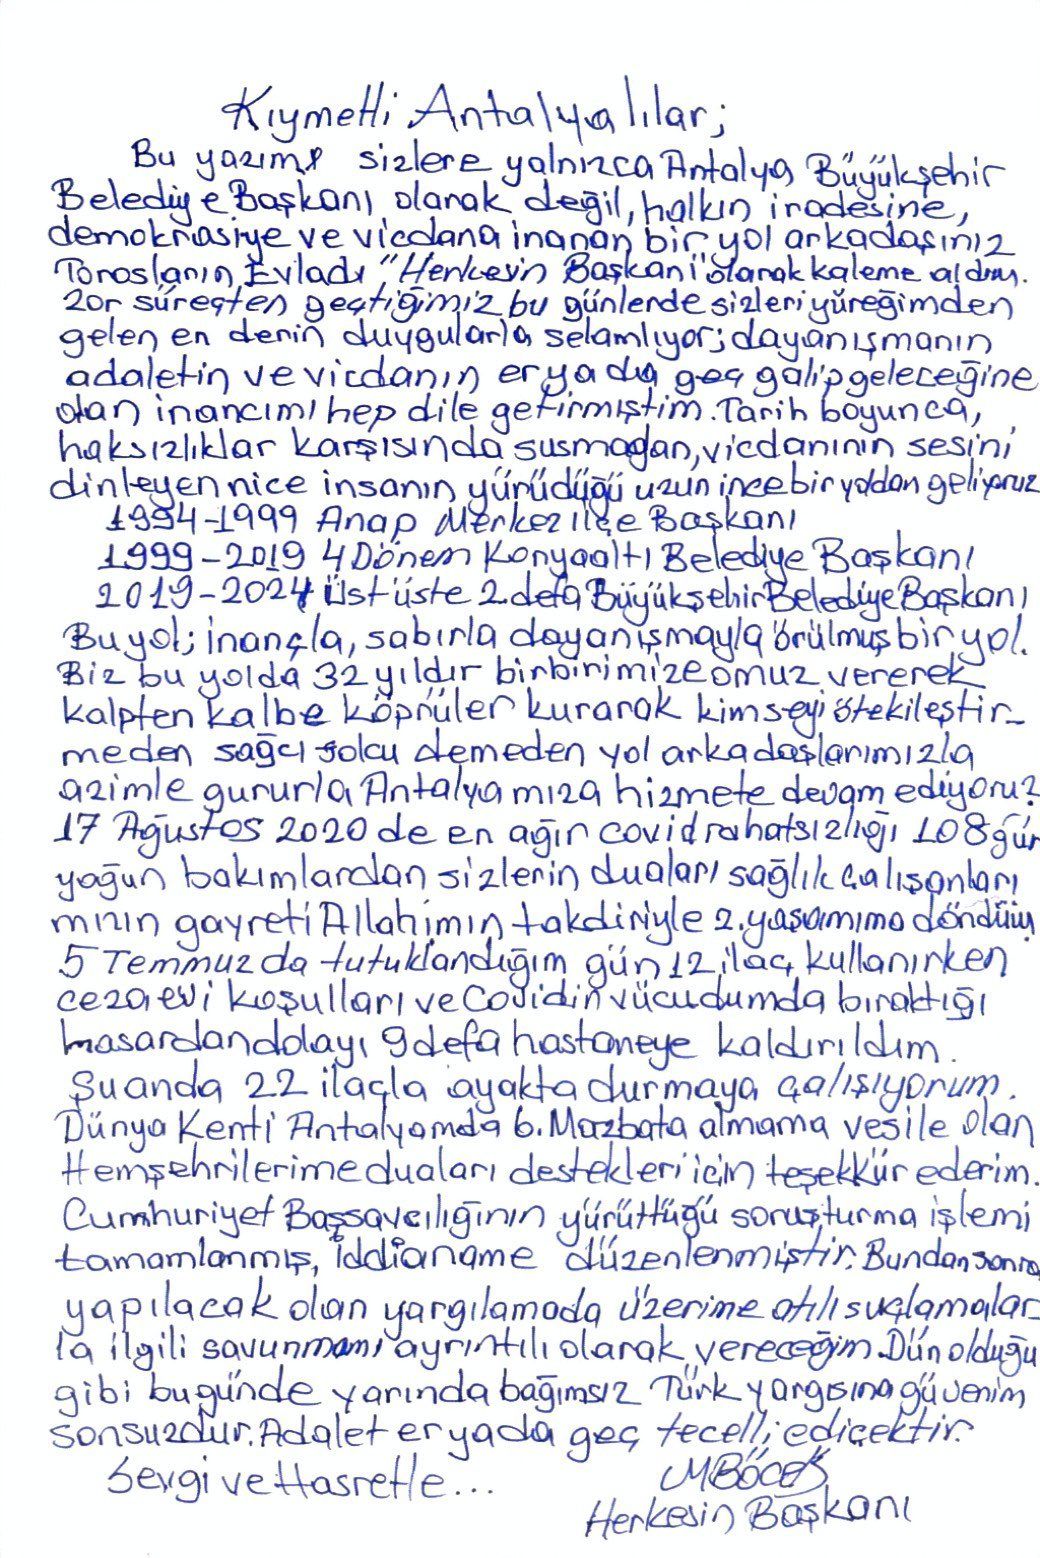 Kıymetli Antalyalılar;
Bu yazımı sizlere yalnızca Antalya Büyükşehir
Belediye Başkanı olarak değil, halkın iradesine,
demokrasiye ve vicdana inanan bir yol arkadaşınız
Torosların Evladı "Herkesin Başkanı" olarak kaleme aldım.
Zor süreçten geçtiğimiz bu günlerde sizleri yüreğimden
gelen en derin duygularla selamlıyor; dayanışmanın
adaletin ve vicdanın er ya da geç galip geleceğine
olan inancımı hep dile getirmiştim. Tarih boyunca,
haksızlıklar karşısında susmadan, vicdanının sesini
dinleyen nice insanın yürüdüğü uzun ince bir yoldan geliyoruz
1994-1999 Anap Merkez ilçe Başkanı
1999-2019 4 Dönem Konyaaltı Belediye Başkanı
2019-2024 Üst üste 2. defa Büyükşehir Belediye Başkanı
Bu yol; inançla, sabırla dayanışmayla örülmüş bir yol.
Biz bu yolda 32 yıldır birbirimize omuz vererek
kalpten kalbe köprüler kurarak kimseyi ötekileştir-
meden sağcı solcu demeden yol arkadaşlarımızla
azimle gururla Antalyamıza hizmete devam ediyoruz
17 Ağustos 2020 de en ağır covid rahatsızlığı 108 gün
yoğun bakımlardan sizlerin duaları sağlık çalışanları
mızın gayreti Allahımın takdiriyle 2. yaşamıma döndüm
5 Temmuz da tutuklandığım gün 12 ilaç kullanırken
cezaevi koşulları ve Covidin vücudumda bıraktığı
hasardan dolayı 9 defa hastaneye kaldırıldım.
Şuanda 22 ilaçla ayakta durmaya çalışıyorum.
Dünya Kenti Antalyamda 6. Mazbata almama vesile olan
Hemşehrilerime duaları destekleri için teşekkür ederim.
Cumhuriyet Başsavcılığının yürüttüğü soruşturma işlemi
tamamlanmış, iddianame düzenlenmiştir. Bundan sonra
yapılacak olan yargılamada üzerime atılı suçlamalar-
la ilgili savunmamı ayrıntılı olarak vereceğim. Dün olduğu
gibi bugünde yarında bağımsız Türk yargısına güvenim
sonsuzdur. Adalet er ya da geç tecelli edicektir.
Sevgi ve Hasretle...
MBÖCEK
Herkesin Başkanı